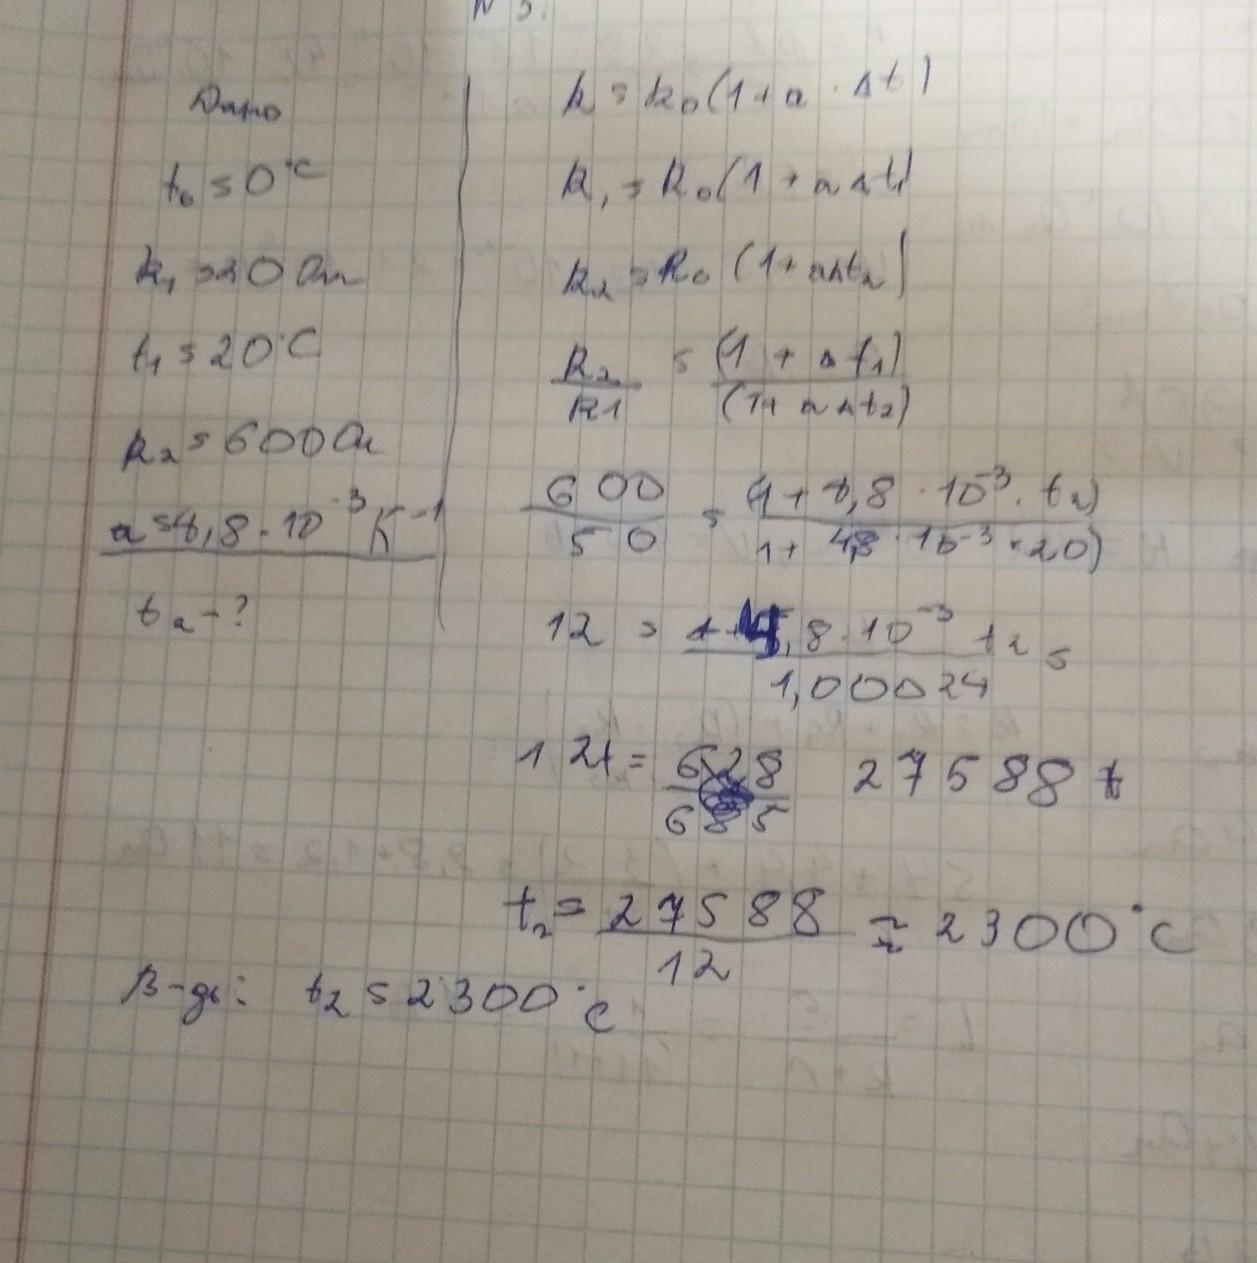 N 3.
Дано
t₀ = 0°C
R₁ = 20 Ом
t₁ = 20°C
R₂ = 600 Ом
a = 4,8 · 10⁻³ К⁻¹
t₂ - ?
R = R₀ (1 + a · Δt)
R₁ = R₀ (1 + a Δt₁)
R₂ = R₀ (1 + aΔt₂)
R₂/R1 = (1 + a t₁)/(1+ a Δt₂)
600/50 = (1 + 4,8 · 10⁻³ · t₂)/1 + 4,8 · 10⁻³ · 20)
12 = 1+4,8·10⁻³ t₂/1,00024 =
12t = 6528/685 27588 t
t₂ = 27588/12 ≈ 2300°C
В-дь: t₂ = 2300°C